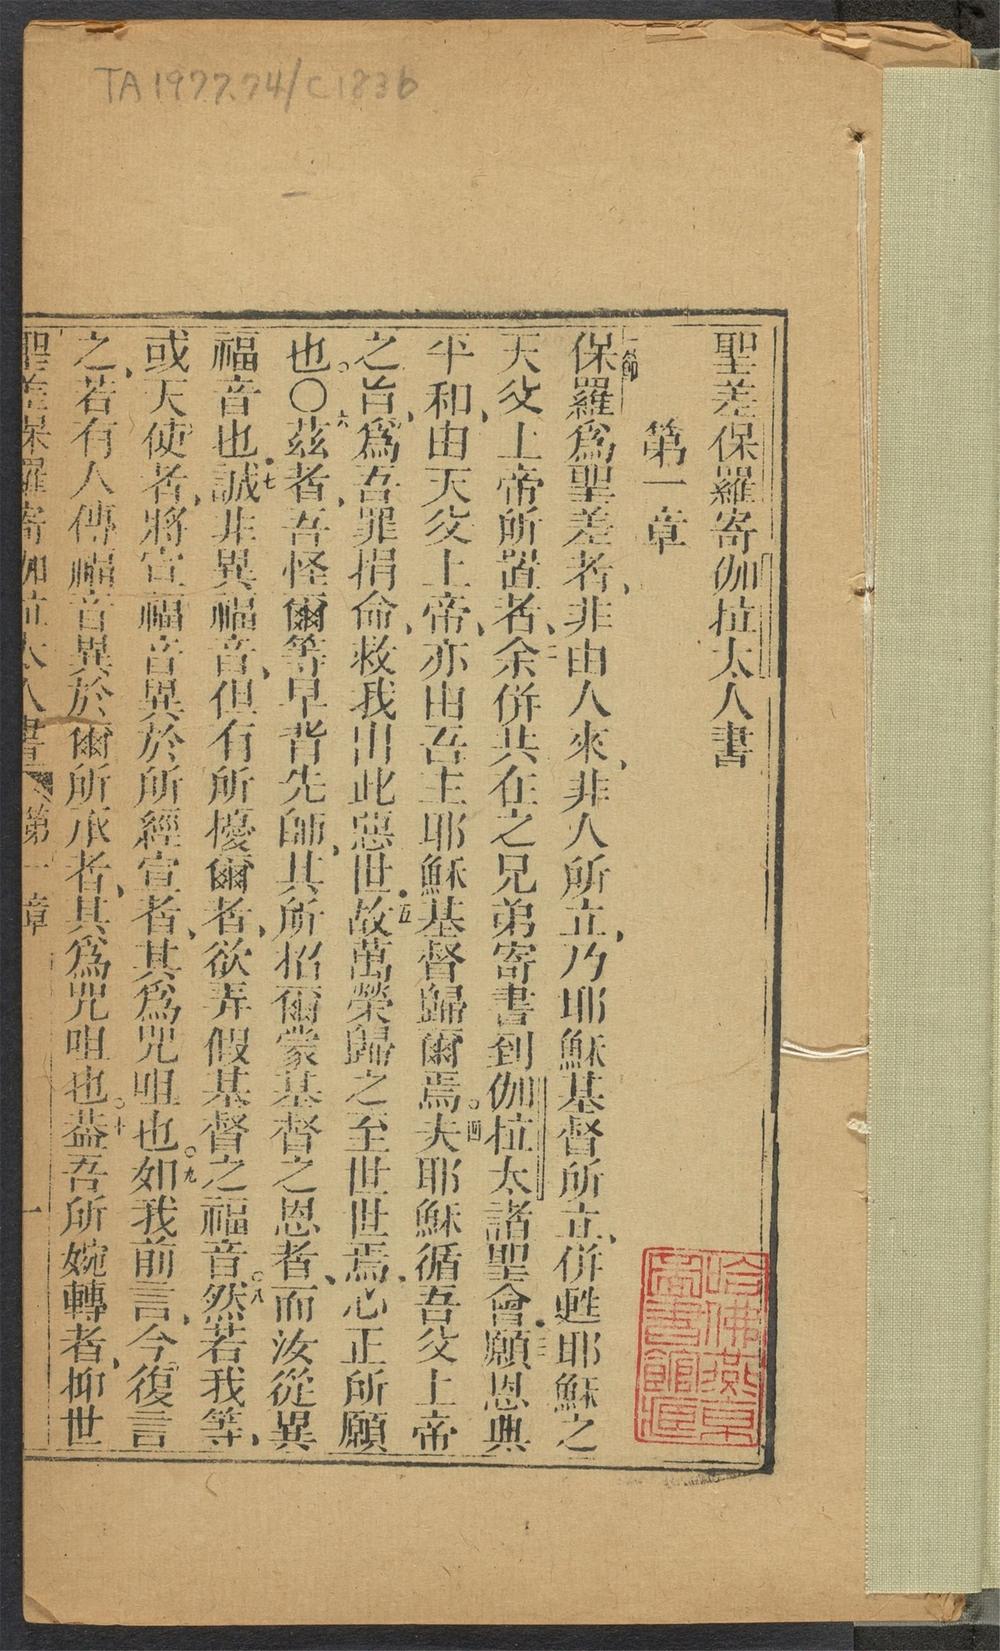 TA 1977.74/C1836
聖差保羅寄伽拉太人書
第一章
一節保羅爲聖差者、非由人來、非人所立、乃耶穌基督所立、併甦耶穌之
天父上帝所置者、二余併共在之兄弟寄書到伽拉太諸聖會、三願恩典
平和、由天父上帝、亦由吾主耶穌基督歸爾焉。四夫耶穌循吾父上帝
之旨、爲吾罪捐命、救我出此惡世、五故萬榮歸之至世世焉、心正所願
也。〇六茲者、吾怪爾等早背先師、其所招爾蒙基督之恩者、而汝從異
福音也、七誠非異福音、但有所擾爾者、欲弄假基督之福音。八然若我等、
或天使者、將宣福音異於所經宣者、其爲咒咀也。九如我前言、今復言
之、若有人傳福音異於爾所承者、其爲咒咀也。十葢吾所婉轉者、抑世
聖差保羅寄伽拉太人書 第一章 一
哈佛燕京圖書館